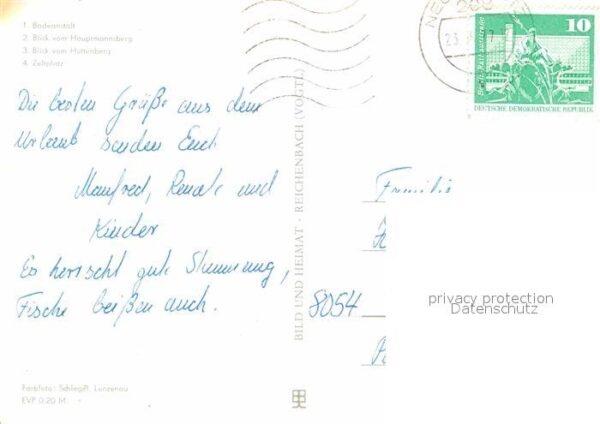 1. Badeanstalt
2. Blick vom Hauptmannsberg
3. Blick vom Hüttenberg
4. Zeltplatz
Die besten Grüße aus dem
Urlaub senden Euch
Manfred, Renate und
Kinder
Es herrscht gute Stimmung,
Fische beißen auch.
Farbfoto: Schlegift, Lunzenau
EVP 0,20 M
BILD UND HEIMAT · REICHENBACH (VOGTL)
10
Berlin, Rathausstraße
DEUTSCHE DEMOKRATISCHE REPUBLIK
Familie
8054
privacy protection
Datenschutz